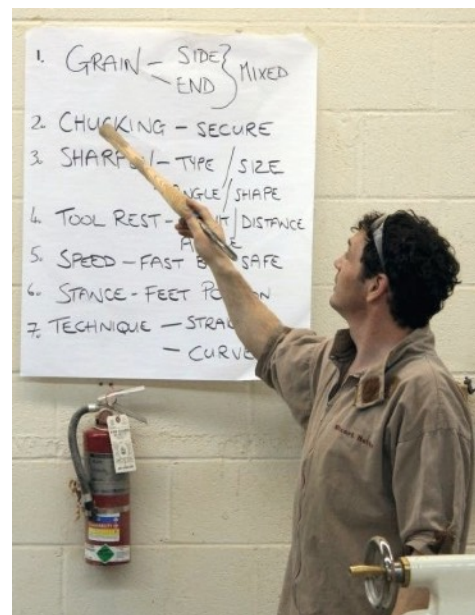 1. GRAIN — SIDE
END } MIXED
2. CHUCKING — SECURE
3. SHARPEN — TYPE / SIZE
ANGLE / SHAPE
4. TOOL REST — / DISTANCE
5. SPEED — FAST SAFE
6. STANCE - FEET POSITION
7. TECHNIQUE —
— CURVE